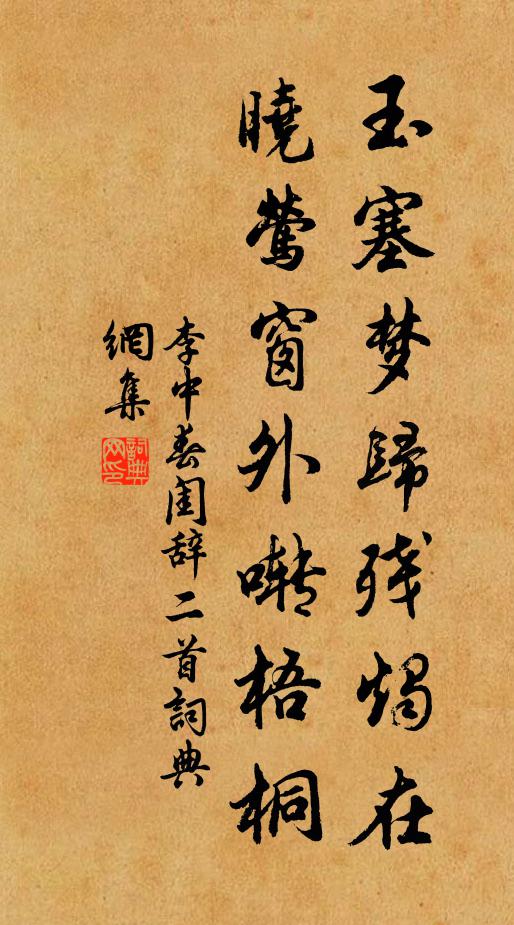 玉塞梦歸残燭在
曉鶯窗外啭梧桐
李中春閨辞二首詞典
網集
詞典网印